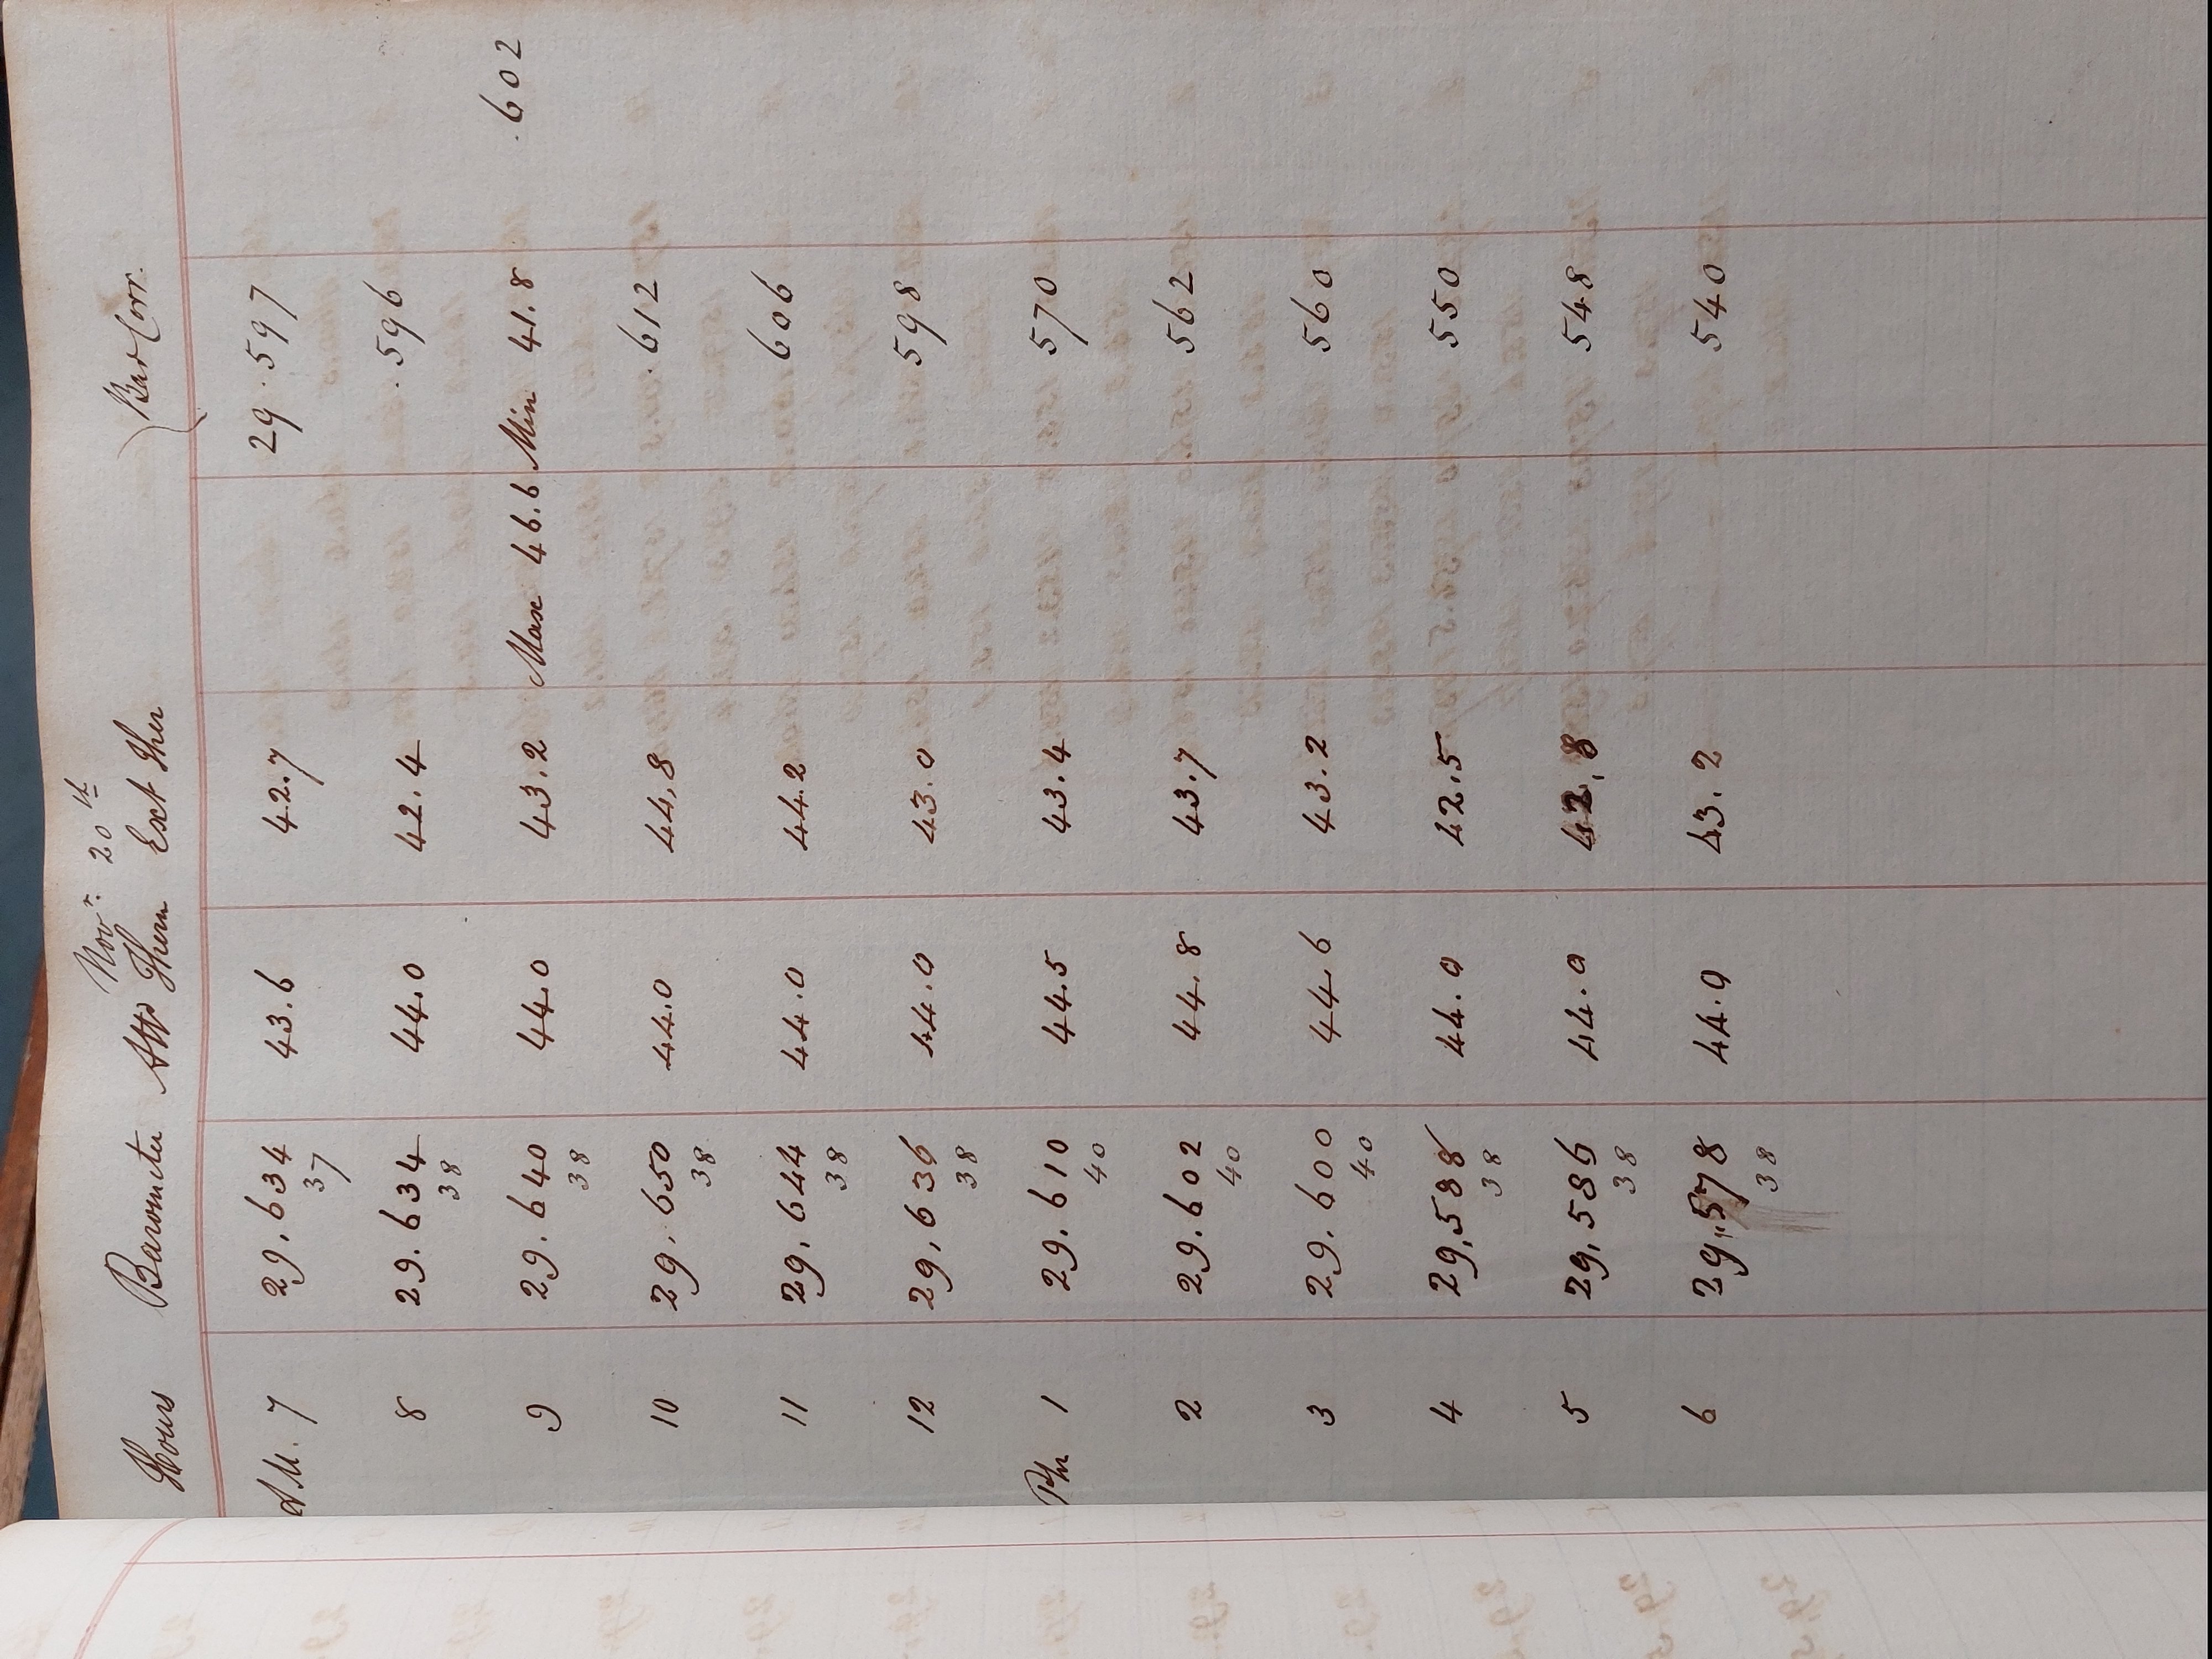 Novr. 20th
Hours Barometer Attd Therm Ext Ther Bar Corr.
A.M. 7 29.634 43.6 42.7 29.597
37
8 29.634 44.0 42.4 .596
38
9 29.640 44.0 43.2 Max 46.6 Min 41.8 .602
38
10 29.650 44.0 44.8 .612
38
11 29,644 44.0 44.2 606
38
12 29,636 44.0 43.0 598
38
Pm 1 29.610 44.5 43.4 570
40
2 29.602 44.8 43.7 562
40
3 29.600 44.6 43.2 560
40
4 29,588 44.0 42.5 550
38
5 29,586 44.0 42,8 548
38
6 29,578 44.0 43.2 540
38